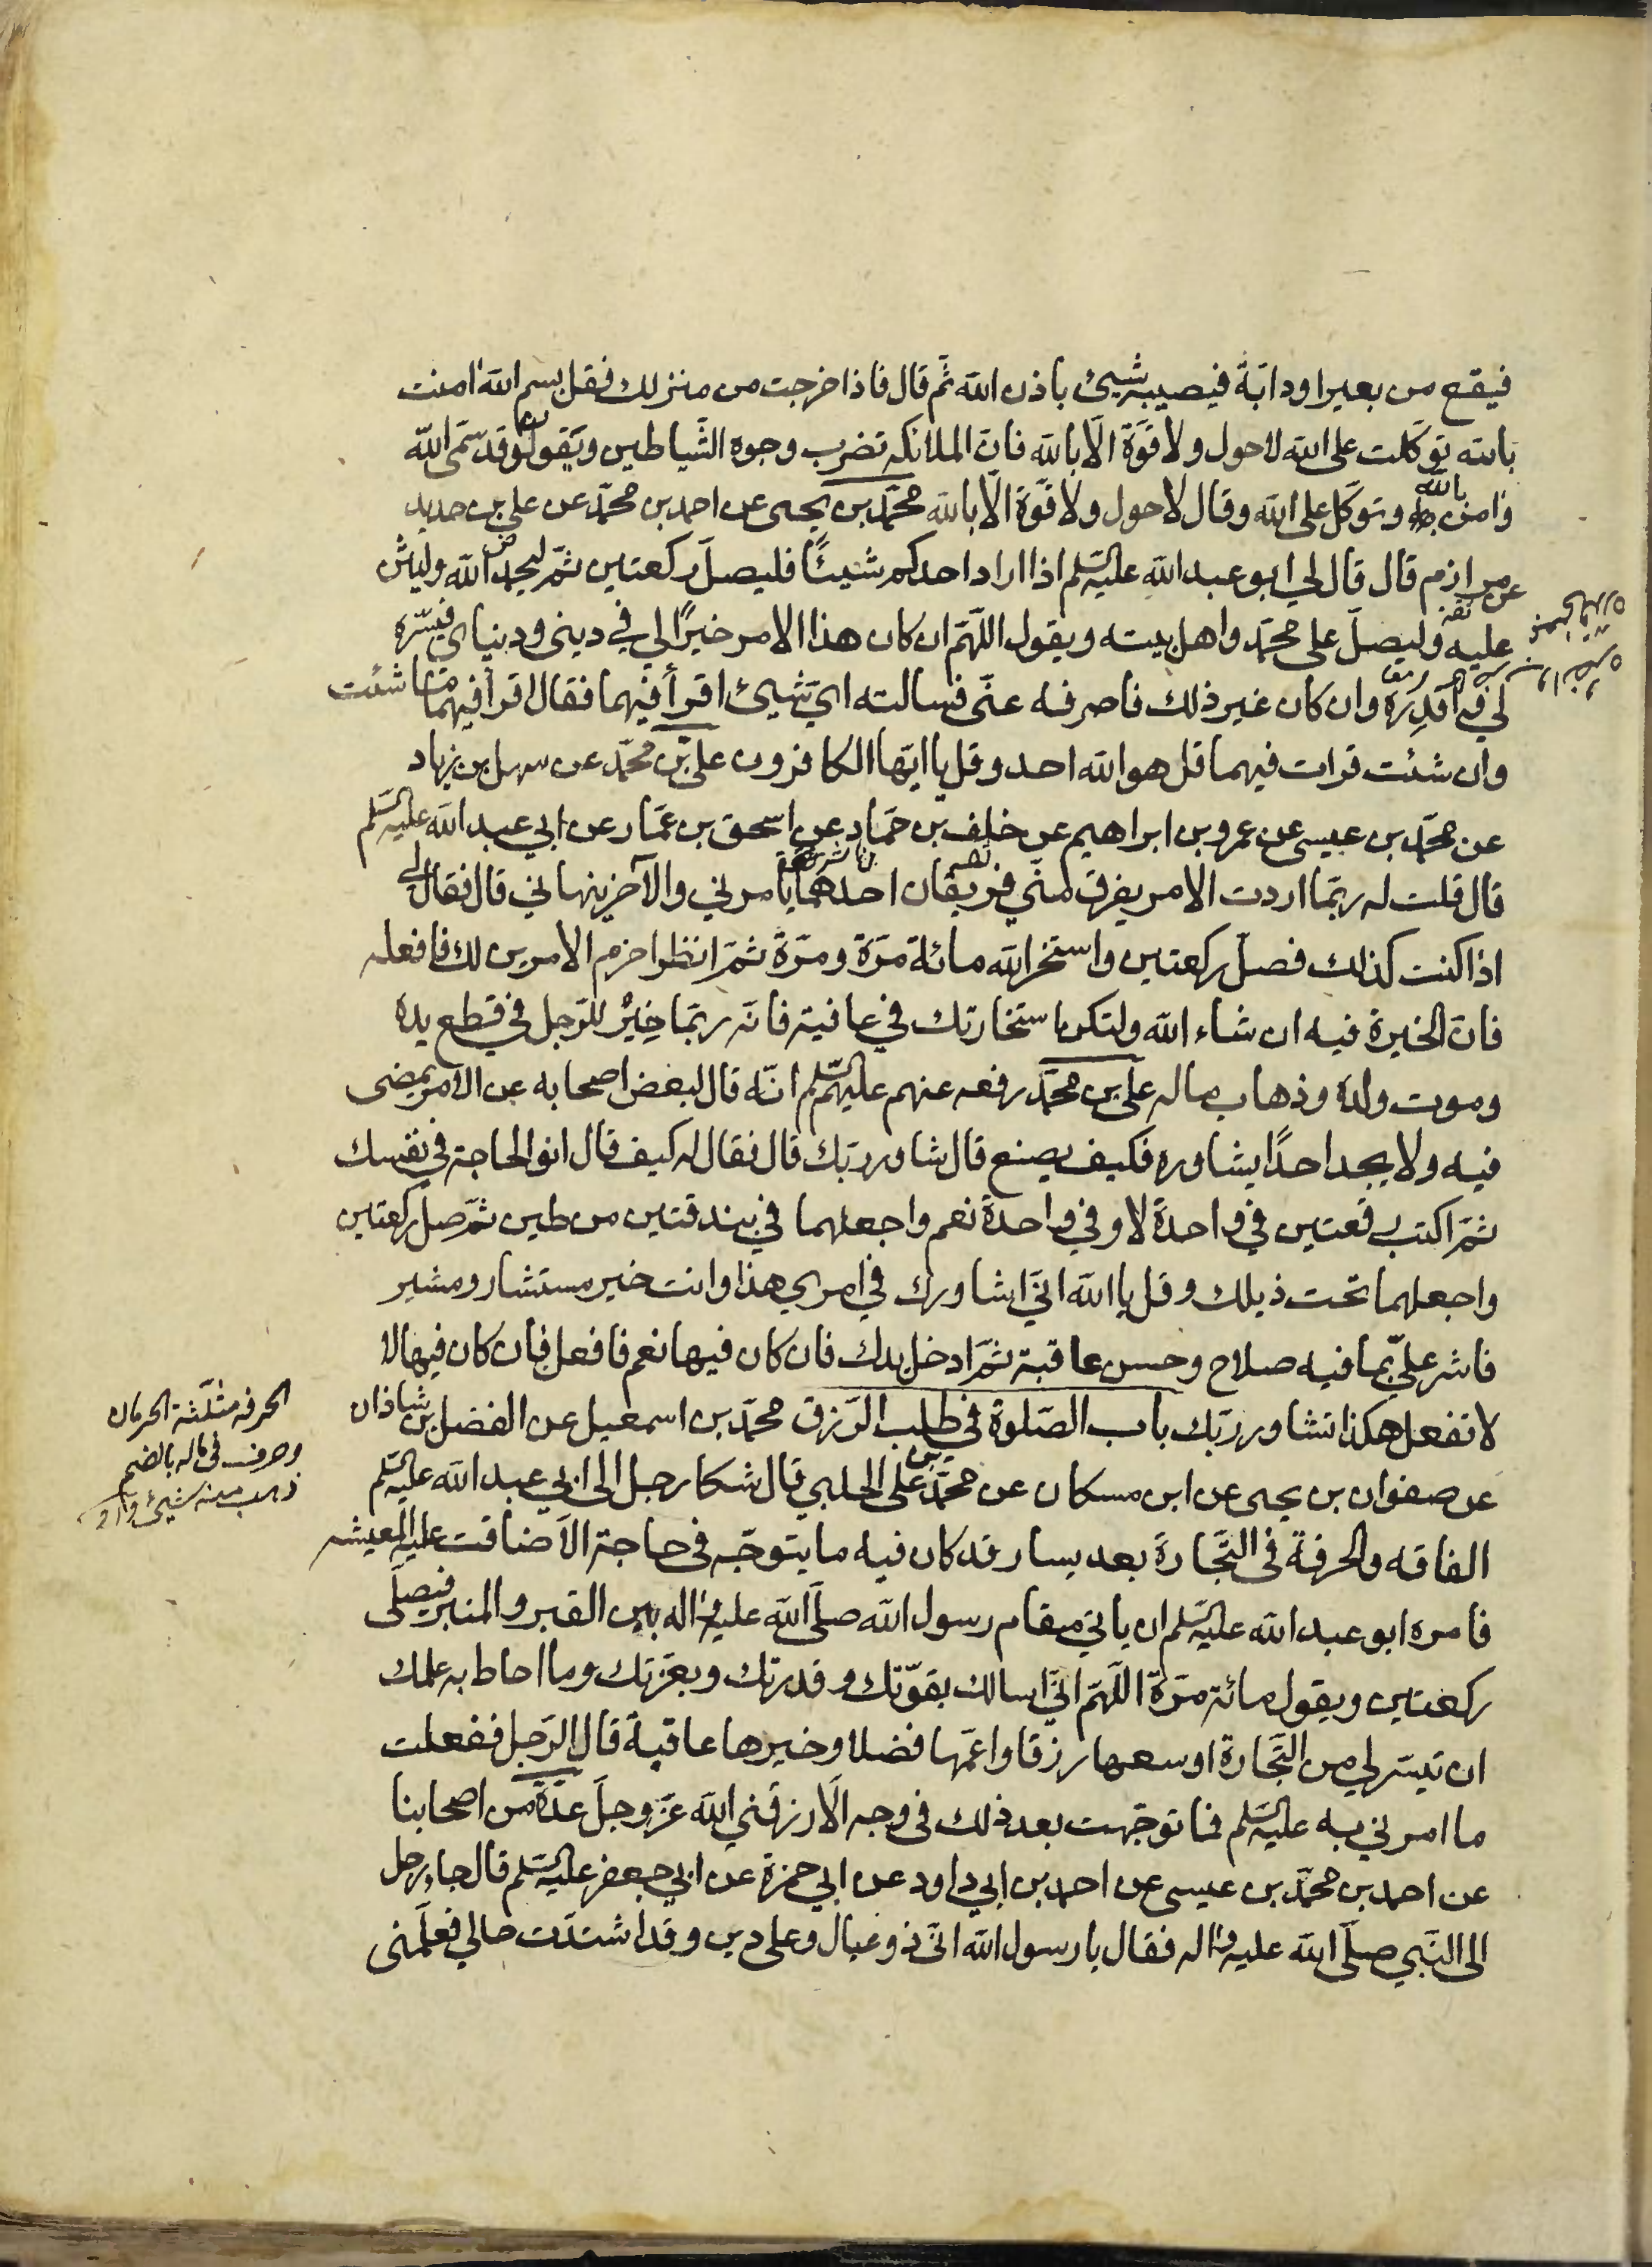 فيقع من بعير او دابّة فيصيبه شيئ باذن الله ثمّ قال فاذا خرجت من منزلك فقل بسم الله امنت
بالله توكّلت على الله لا حول ولا قوّة الّا بالله فانّ الملائكه تضرب وجوه الشّياطين وتقول قد سمّى الله
وامن بالله وتوكّل على الله وقال لا حول ولا قوّة الّا بالله محمّد بن يحيى عن احمد بن محمّد عن علي بن حديد
عن مرازم قال قال لي ابو عبد الله عليه السّلم اذا اراد احدكم شيئًا فليصلّ ركعتين ثمّ ليحمد الله وليثن
عليه وليصلّ على محمّد واهل بيته ويقول اللّهمّ ان كان هذا الامر خيرًا لي في ديني ودنياي فيسّره
لي واقدره وان كان غير ذلك فاصرفه عنّي فسالته ايّ شيئ اقرأ فيهما فقال اقرأ فيهما ما شئت
وان شئت قرات فيهما قل هو الله احد وقل يا ايّها الكافرون علي بن محمّد عن سهل بن زياد
عن محمّد بن عيسى عن عمرو بن ابراهيم عن خلف بن حمّاد عن اسحق بن عمّار عن ابي عبد الله عليه السّلم
قال قلت له ربّما اردت الامر يفرق منّي فريقان احدهما يامرني والآخر ينهاني قال فقال لي
اذا كنت كذلك فصلّ ركعتين واستخر الله مائة مرّة ومرّة ثمّ انظر احزم الامرين لك فافعله
فانّ الخيرة فيه ان شاء الله ولتكن استخارتك في عافية فانّه ربّما خِيْرَ للرّجل في قطع يده
وموت ولده وذهاب ماله علي بن محمّد رفعه عنهم عليهم السّلم انّه قال لبعض اصحابه عن الامر يمضى
فيه ولا يجد احدًا يشاوره فكيف يصنع قال شاور ربّك قال فقال له كيف قال انو الحاجة في نفسك
ثمّ اكتب رقعتين في واحدة لا وفي واحدة نعم واجعلهما في بندقتين من طين ثمّ صلّ ركعتين
واجعلهما تحت ذيلك وقل يا الله انّي اشاورك في امري هذا وانت خير مستشار ومشير
فاشر عليّ بما فيه صلاح وحسن عاقبة ثمّ ادخل يدك فان كان فيها نعم فافعل فان كان فيها لا
لا تفعل هكذا تشاور ربّك باب الصّلوة في طلب الرّزق محمّد بن اسمعيل عن الفضل بن شاذان
عن صفوان بن يحيى عن ابن مسكان عن محمّد بن علي الحلبي قال شكا رجل الى ابي عبد الله عليه السّلم
الفاقه والحرفة في التّجارة بعد يسار قد كان فيه ما يتوجّه في حاجة الّا ضاقت عليه المعيشه
فامره ابو عبد الله عليه السّلم ان ياتي مقام رسول الله صلّى الله عليه واله بين القبر والمنبر فيصلّى
ركعتين ويقول مائة مرّة اللّهمّ انّي اسالك بقوّتك وقدرتك وبعزّتك وما احاط به علمك
ان تيسّر لي من التّجارة اوسعها رزقا واعمّها فضلا وخيرها عاقبة قال الرّجل ففعلت
ما امرني به عليه السّلم فما توجّهت بعد ذلك في وجه الّا رزقني الله عزّ وجلّ عدّة من اصحابنا
عن احمد بن محمّد بن عيسى عن احمد بن ابي داود عن ابي حمزة عن ابي جعفر عليه السّلم قال جاء رجل
الى النّبي صلّى الله عليه واله فقال يا رسول الله انّي ذو عيال وعلى دين وقد اشتدّت حالي فعلّمنى
الحرفه مثلّثة الحرمان
وحرف في ماله بالضم
ذهب منه شيئ